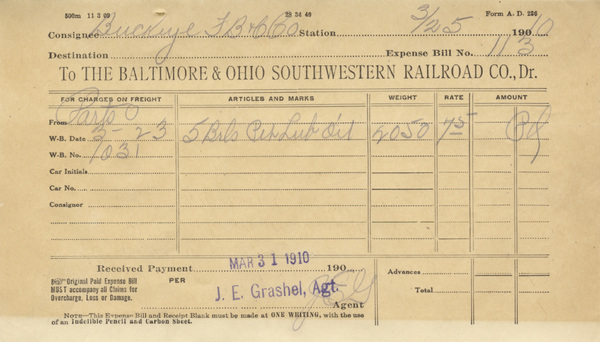 500m 11 3 09 23 34 40 Form A. D. 256
Consignee Buckeye Station 3/25 1910
Destination Expense Bill No. 113
To THE BALTIMORE & OHIO SOUTHWESTERN RAILROAD CO., Dr.
FOR CHARGES ON FREIGHT ARTICLES AND MARKS WEIGHT RATE AMOUNT
From O
W-B. Date 3-23 5 Brls Lub Oil 2050 75 Pd
W-B. No. 1031
Car Initials
Car No.
Consignor
Received Payment MAR 31 1910 190 Advances
Original Paid Expense Bill PER
MUST accompany all Claims for
Overcharge, Loss or Damage.
J. E. Grashel, Agt. Total
Agent
NOTE—This Expense Bill and Receipt Blank must be made at ONE WRITING, with the use
of an Indelible Pencil and Carbon Sheet.